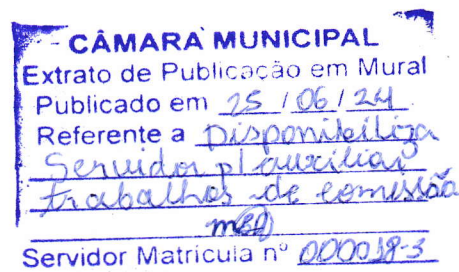 CÂMARA MUNICIPAL
Extrato de Publicação em Mural
Publicado em 25 / 06 / 24
Referente a Disponibiliza
Servidor p/ auxiliar
trabalhos de comissão
Servidor Matricula nº 000018-3